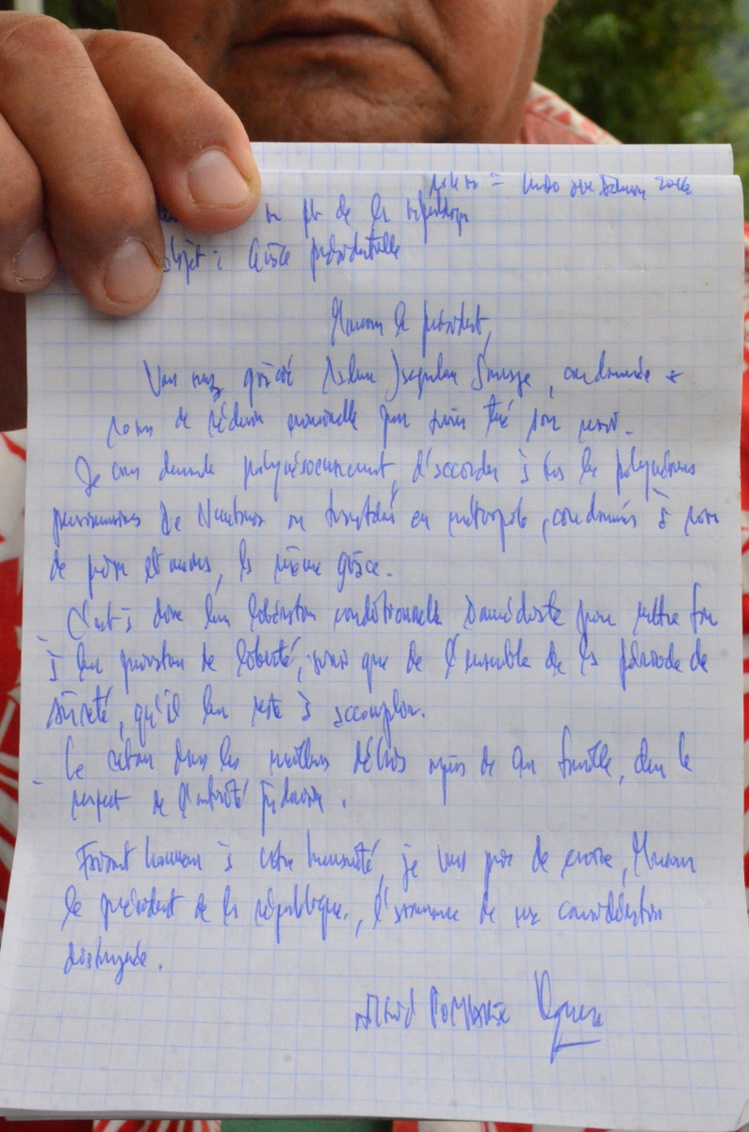 de la république
objet : Grâce présidentielle
Monsieur le président,
Vous avez gracié Madame Jacqueline Sauvage, condamnée à
10 ans de réclusion criminelle pour avoir tué son mari.
Je vous demande, d'accorder à tous les polynésiens
prisonniers de Nuutania ou transférés en métropole, condamnés à 10 ans
de prison et moins, la même grâce.
C'est à dire leur libération conditionnelle immédiate pour mettre fin
à leur privation de liberté, ainsi que de l'ensemble de la période de
sûreté, qu'il leur reste à accomplir.
Le retour dans les meilleurs délais auprès de leur famille, dans le
respect de l'autorité judiciaire.
Faisant honneur à votre humanité, je vous prie de croire, Monsieur
le président de la république, l'assurance de ma considération
distinguée.